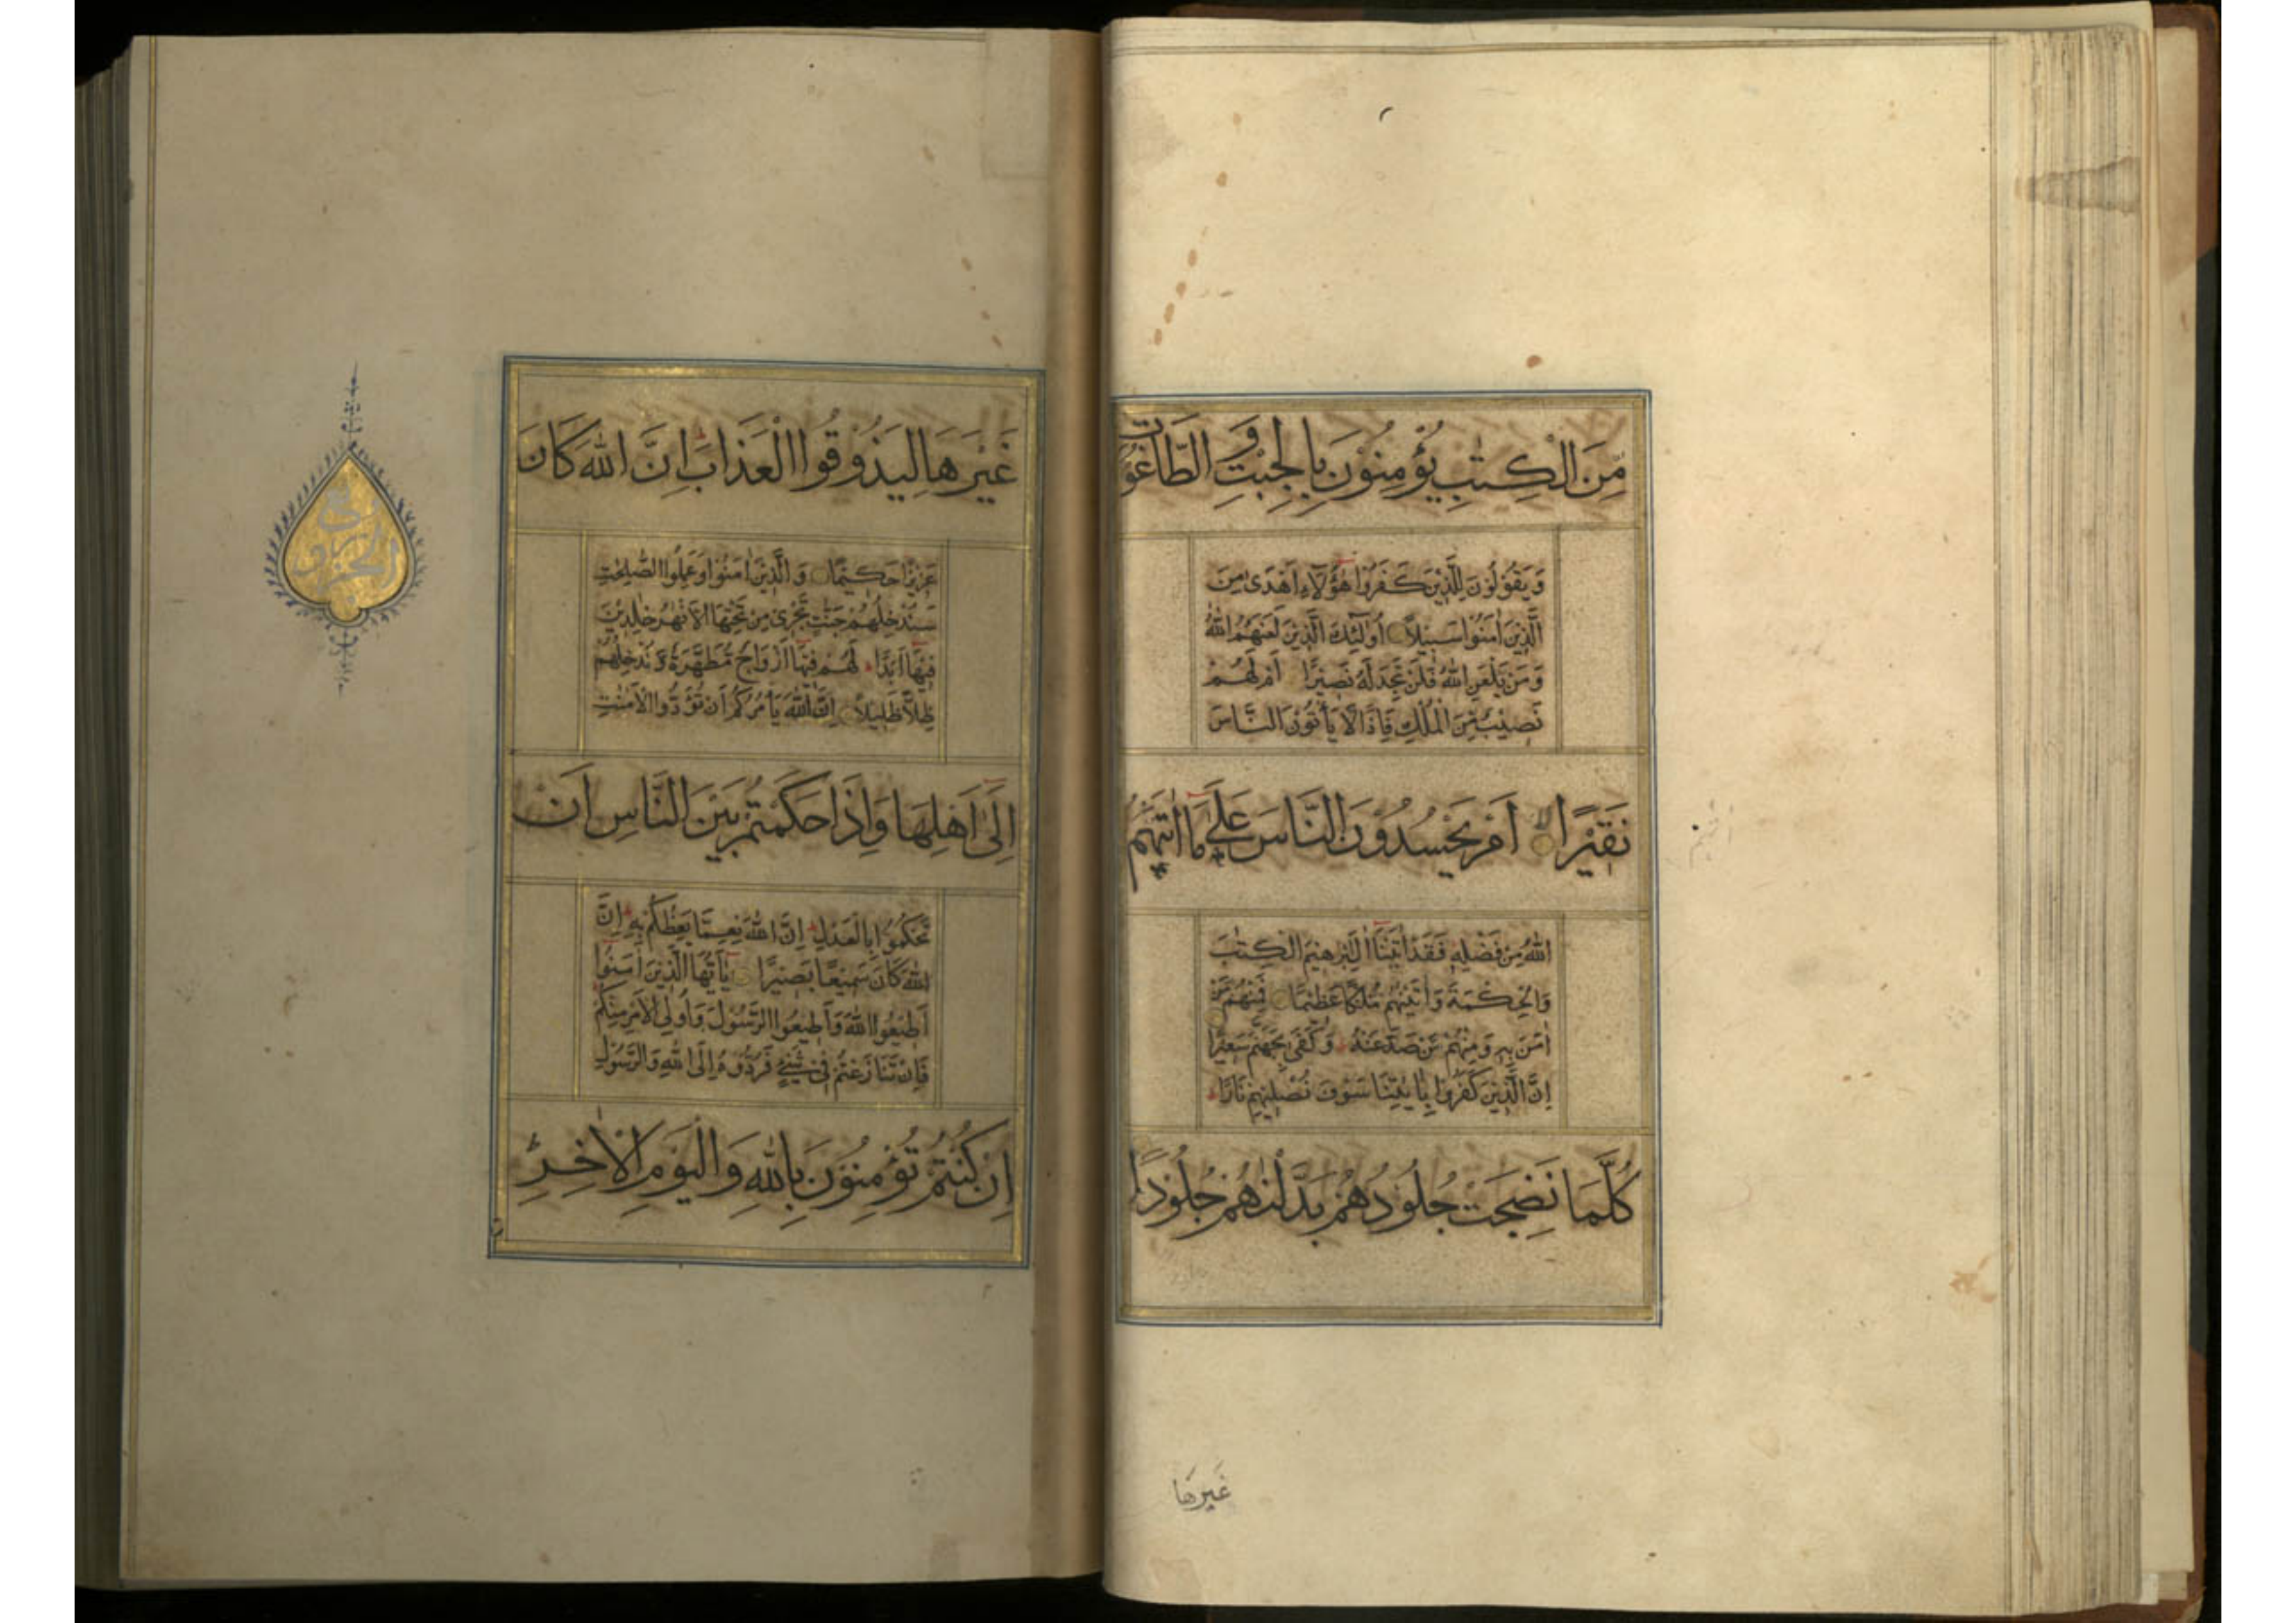 مِّنَ الْكِتٰبِ يُؤْمِنُوْنَ بِالْجِبْتِ وَ الطَّاغُوْتِ
وَيَقُوْلُوْنَ لِلَّذِيْنَ كَفَرُوْا هٰۤؤُلَآءِ اَهْدٰى مِنَ
الَّذِيْنَ اٰمَنُوْا سَبِيْلًا اُولٰٓئِكَ الَّذِيْنَ لَعَنَهُمُ اللّٰهُ
وَمَنْ يَّلْعَنِ اللّٰهُ فَلَنْ تَجِدَ لَهٗ نَصِيْرًا اَمْ لَهُمْ
نَصِيْبٌ مِّنَ الْمُلْكِ فَاِذًا لَّا يُؤْتُوْنَ النَّاسَ
نَقِيْرًا اَمْ يَحْسُدُوْنَ النَّاسَ عَلٰى مَاۤ اٰتٰهُمُ
اللّٰهُ مِنْ فَضْلِهٖ فَقَدْ اٰتَيْنَاۤ اٰلَ اِبْرٰهِيْمَ الْكِتٰبَ
وَالْحِكْمَةَ وَاٰتَيْنٰهُمْ مُّلْكًا عَظِيْمًا فَمِنْهُمْ مَّنْ
اٰمَنَ بِهٖ وَمِنْهُمْ مَّنْ صَدَّ عَنْهُ وَكَفٰى بِجَهَنَّمَ سَعِيْرًا
اِنَّ الَّذِيْنَ كَفَرُوْا بِاٰيٰتِنَا سَوْفَ نُصْلِيْهِمْ نَارًا
كُلَّمَا نَضِجَتْ جُلُوْدُهُمْ بَدَّلْنٰهُمْ جُلُوْدًا
غَيْرَهَا
غَيْرَهَا لِيَذُوْقُوا الْعَذَابَ اِنَّ اللّٰهَ كَانَ
عَزِيْزًا حَكِيْمًا وَالَّذِيْنَ اٰمَنُوْا وَعَمِلُوا الصّٰلِحٰتِ
سَنُدْخِلُهُمْ جَنّٰتٍ تَجْرِىْ مِنْ تَحْتِهَا الْاَنْهٰرُ خٰلِدِيْنَ
فِيْهَاۤ اَبَدًا لَهُمْ فِيْهَاۤ اَزْوَاجٌ مُّطَهَّرَةٌ وَّنُدْخِلُهُمْ
ظِلًّا ظَلِيْلًا اِنَّ اللّٰهَ يَاْمُرُكُمْ اَنْ تُؤَدُّوا الْاَمٰنٰتِ
اِلٰۤى اَهْلِهَا وَاِذَا حَكَمْتُمْ بَيْنَ النَّاسِ اَنْ
تَحْكُمُوْا بِالْعَدْلِ اِنَّ اللّٰهَ نِعِمَّا يَعِظُكُمْ بِهٖ اِنَّ
اللّٰهَ كَانَ سَمِيْعًا بَصِيْرًا يٰۤاَيُّهَا الَّذِيْنَ اٰمَنُوْا
اَطِيْعُوا اللّٰهَ وَاَطِيْعُوا الرَّسُوْلَ وَاُولِى الْاَمْرِ مِنْكُمْ
فَاِنْ تَنَازَعْتُمْ فِىْ شَىْءٍ فَرُدُّوْهُ اِلَى اللّٰهِ وَالرَّسُوْلِ
اِنْ كُنْتُمْ تُؤْمِنُوْنَ بِاللّٰهِ وَالْيَوْمِ الْاٰخِرِ